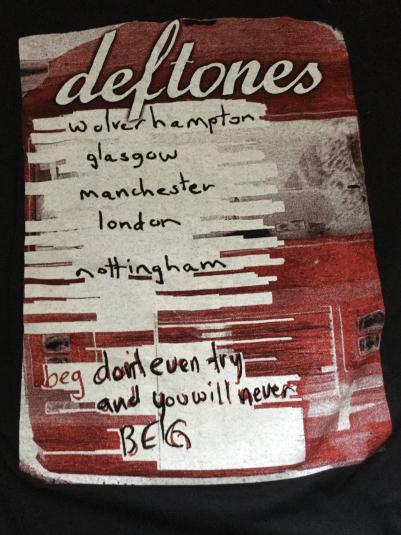 deftones
wolverhampton
glasgow
manchester
london
nottingham
beg don't even try
and you will never
BEG